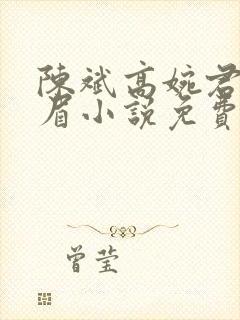 陳斌高婉君
眉小說免費
曾莹